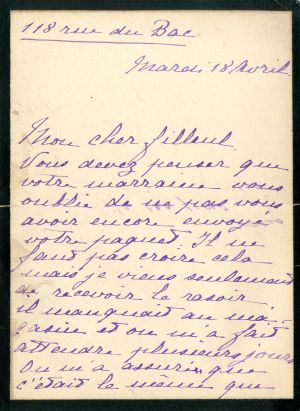 118 rue du Bac
Mardi 18 Avril
Mon cher filleul
Vous devez penser que
votre marraine vous
oublie de ne pas vous
avoir encore envoyé
votre paquet. Il ne
faut pas croire cela
mais je viens seulement
de recevoir le rasoir
il manquait au ma-
gasin et on m'a fait
attendre plusieurs jours
On m'a assuré que
c'était le même que